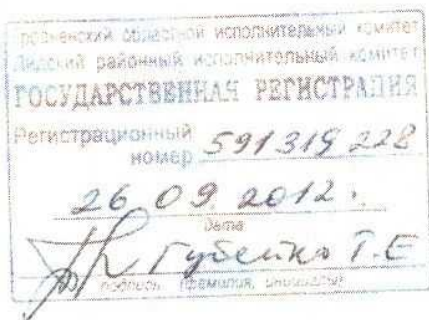 Гродненский областной исполнительный комитет
Лидский районный исполнительный комитет
ГОСУДАРСТВЕННАЯ РЕГИСТРАЦИЯ
Регистрационный
номер 591319228
26 09 2012г.
Дата
Губейко Т.Е
подпись (фамилия, инициалы)